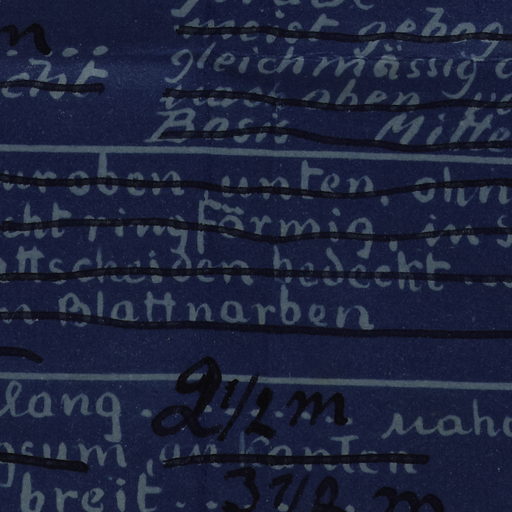 meist gebog
gleichmässig
nach oben
Basis Mitte
nur oben unten, ohn
cht ringförmig, in s
attscheiden bedeckt
n Blattnarben
lang . . . . . .
2 1/2 m
un Kanten
breit . .
3 1/2 m